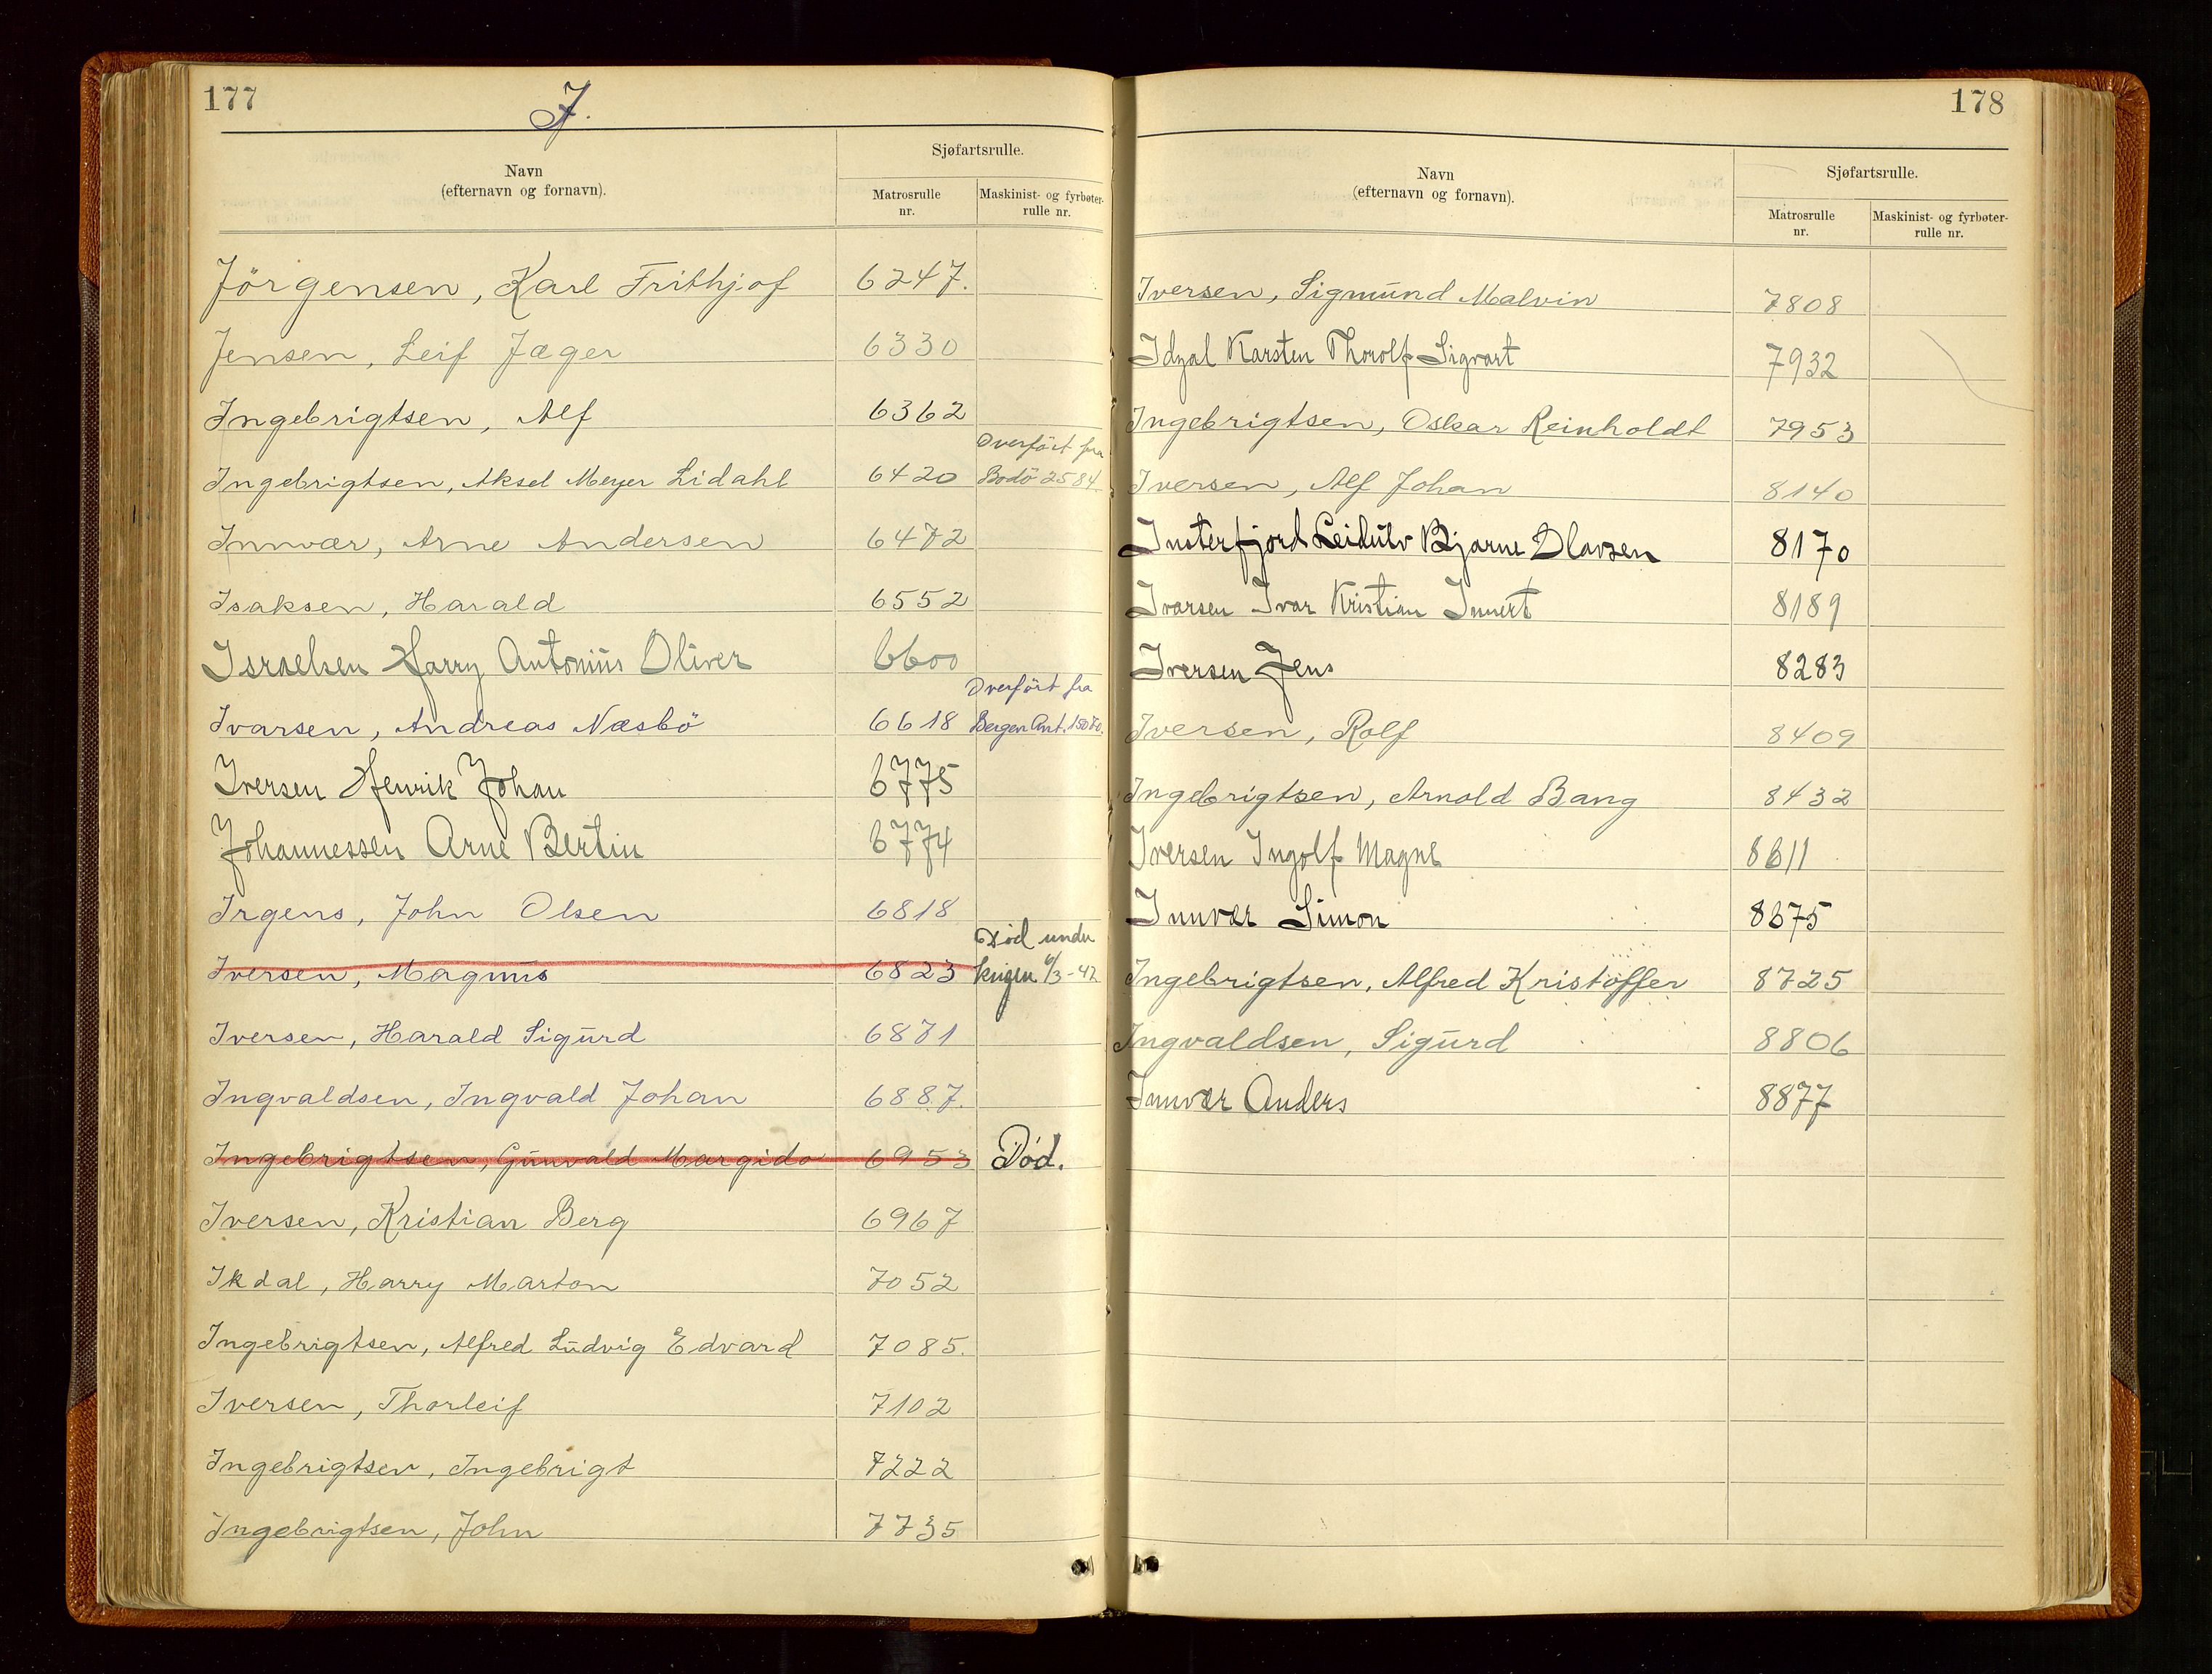 177
J.
Navn
(efternavn og fornavn).
Sjøfartsrulle.
Matrosrulle nr.
Maskinist- og fyrbøter-rulle nr.
Jörgensen, Karl Frithjof 6247.
Jensen, Leif Jæger 6330
Ingebrigtsen, Alf 6362
Ingebrigtsen, Aksel Meyer Lidahl 6420 Overfört fra Bodö 2584
Innvær, Arne Andersen 6472
Isaksen, Harald 6552
Israelsen Harry Antonius Oliver 6600
Ivarsen, Andreas Næsbö 6618 Overfört fra Bergen Ant. 15070.
Iversen Henrik Johan 6775
Johannessen Arne Bertin 6774
Irgens, John Olsen 6818
Iversen, Magnus 6823 Död under krigen 6/3-42
Iversen, Harald Sigurd 6871
Ingvaldsen, Ingvald Johan 6887.
Ingebrigtsen, Gunvald Margido 6953 Död.
Iversen, Kristian Berg 6967
Ikdal, Harry Marton 7052
Ingebrigtsen, Alfred Ludvig Edvard 7085.
Iversen, Thorleif 7102
Ingebrigtsen, Ingebrigt 7222
Ingebrigtsen, John 7735
178
Navn
(efternavn og fornavn).
Sjøfartsrulle.
Matrosrulle nr.
Maskinist- og fyrbøter-rulle nr.
Iversen, Sigmund Malvin 7808
Idzal Karsten Thorolf Sigvart 7932
Ingebrigtsen, Oskar Reinholdt 7953
Iversen, Alf Johan 8140
Insterfjord Leidulv Bjarne Olavsen 8170
Ivarsen Ivar Kristian Innert 8189
Iversen Jens 8283
Iversen, Rolf 8409
Ingebrigtsen, Arnold Bang 8432
Iversen Ingolf Magne 8611
Innvær Simon 8675
Ingebrigtsen, Alfred Kristoffer 8725
Ingvaldsen, Sigurd 8806
Innvær Anders 8877